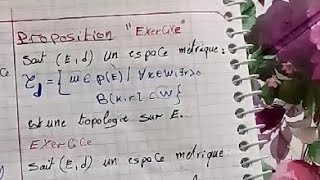 Proposition "Exercice"
Soit (E, d) un espace métrique:
τd = { w ∈ p(E) | ∀x ∈ w, ∃r>0
B(x,r) ⊂ w }
est une topologie sur E.
EXERCICE
Soit (E, d) un espace métrique.